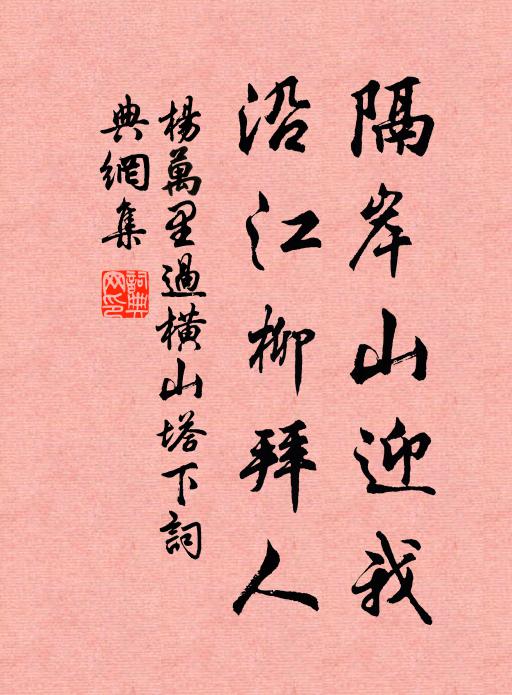 隔岸山迎我
沿江柳拜人
楊萬里過橫山塔下詞
典網集
詞典網印